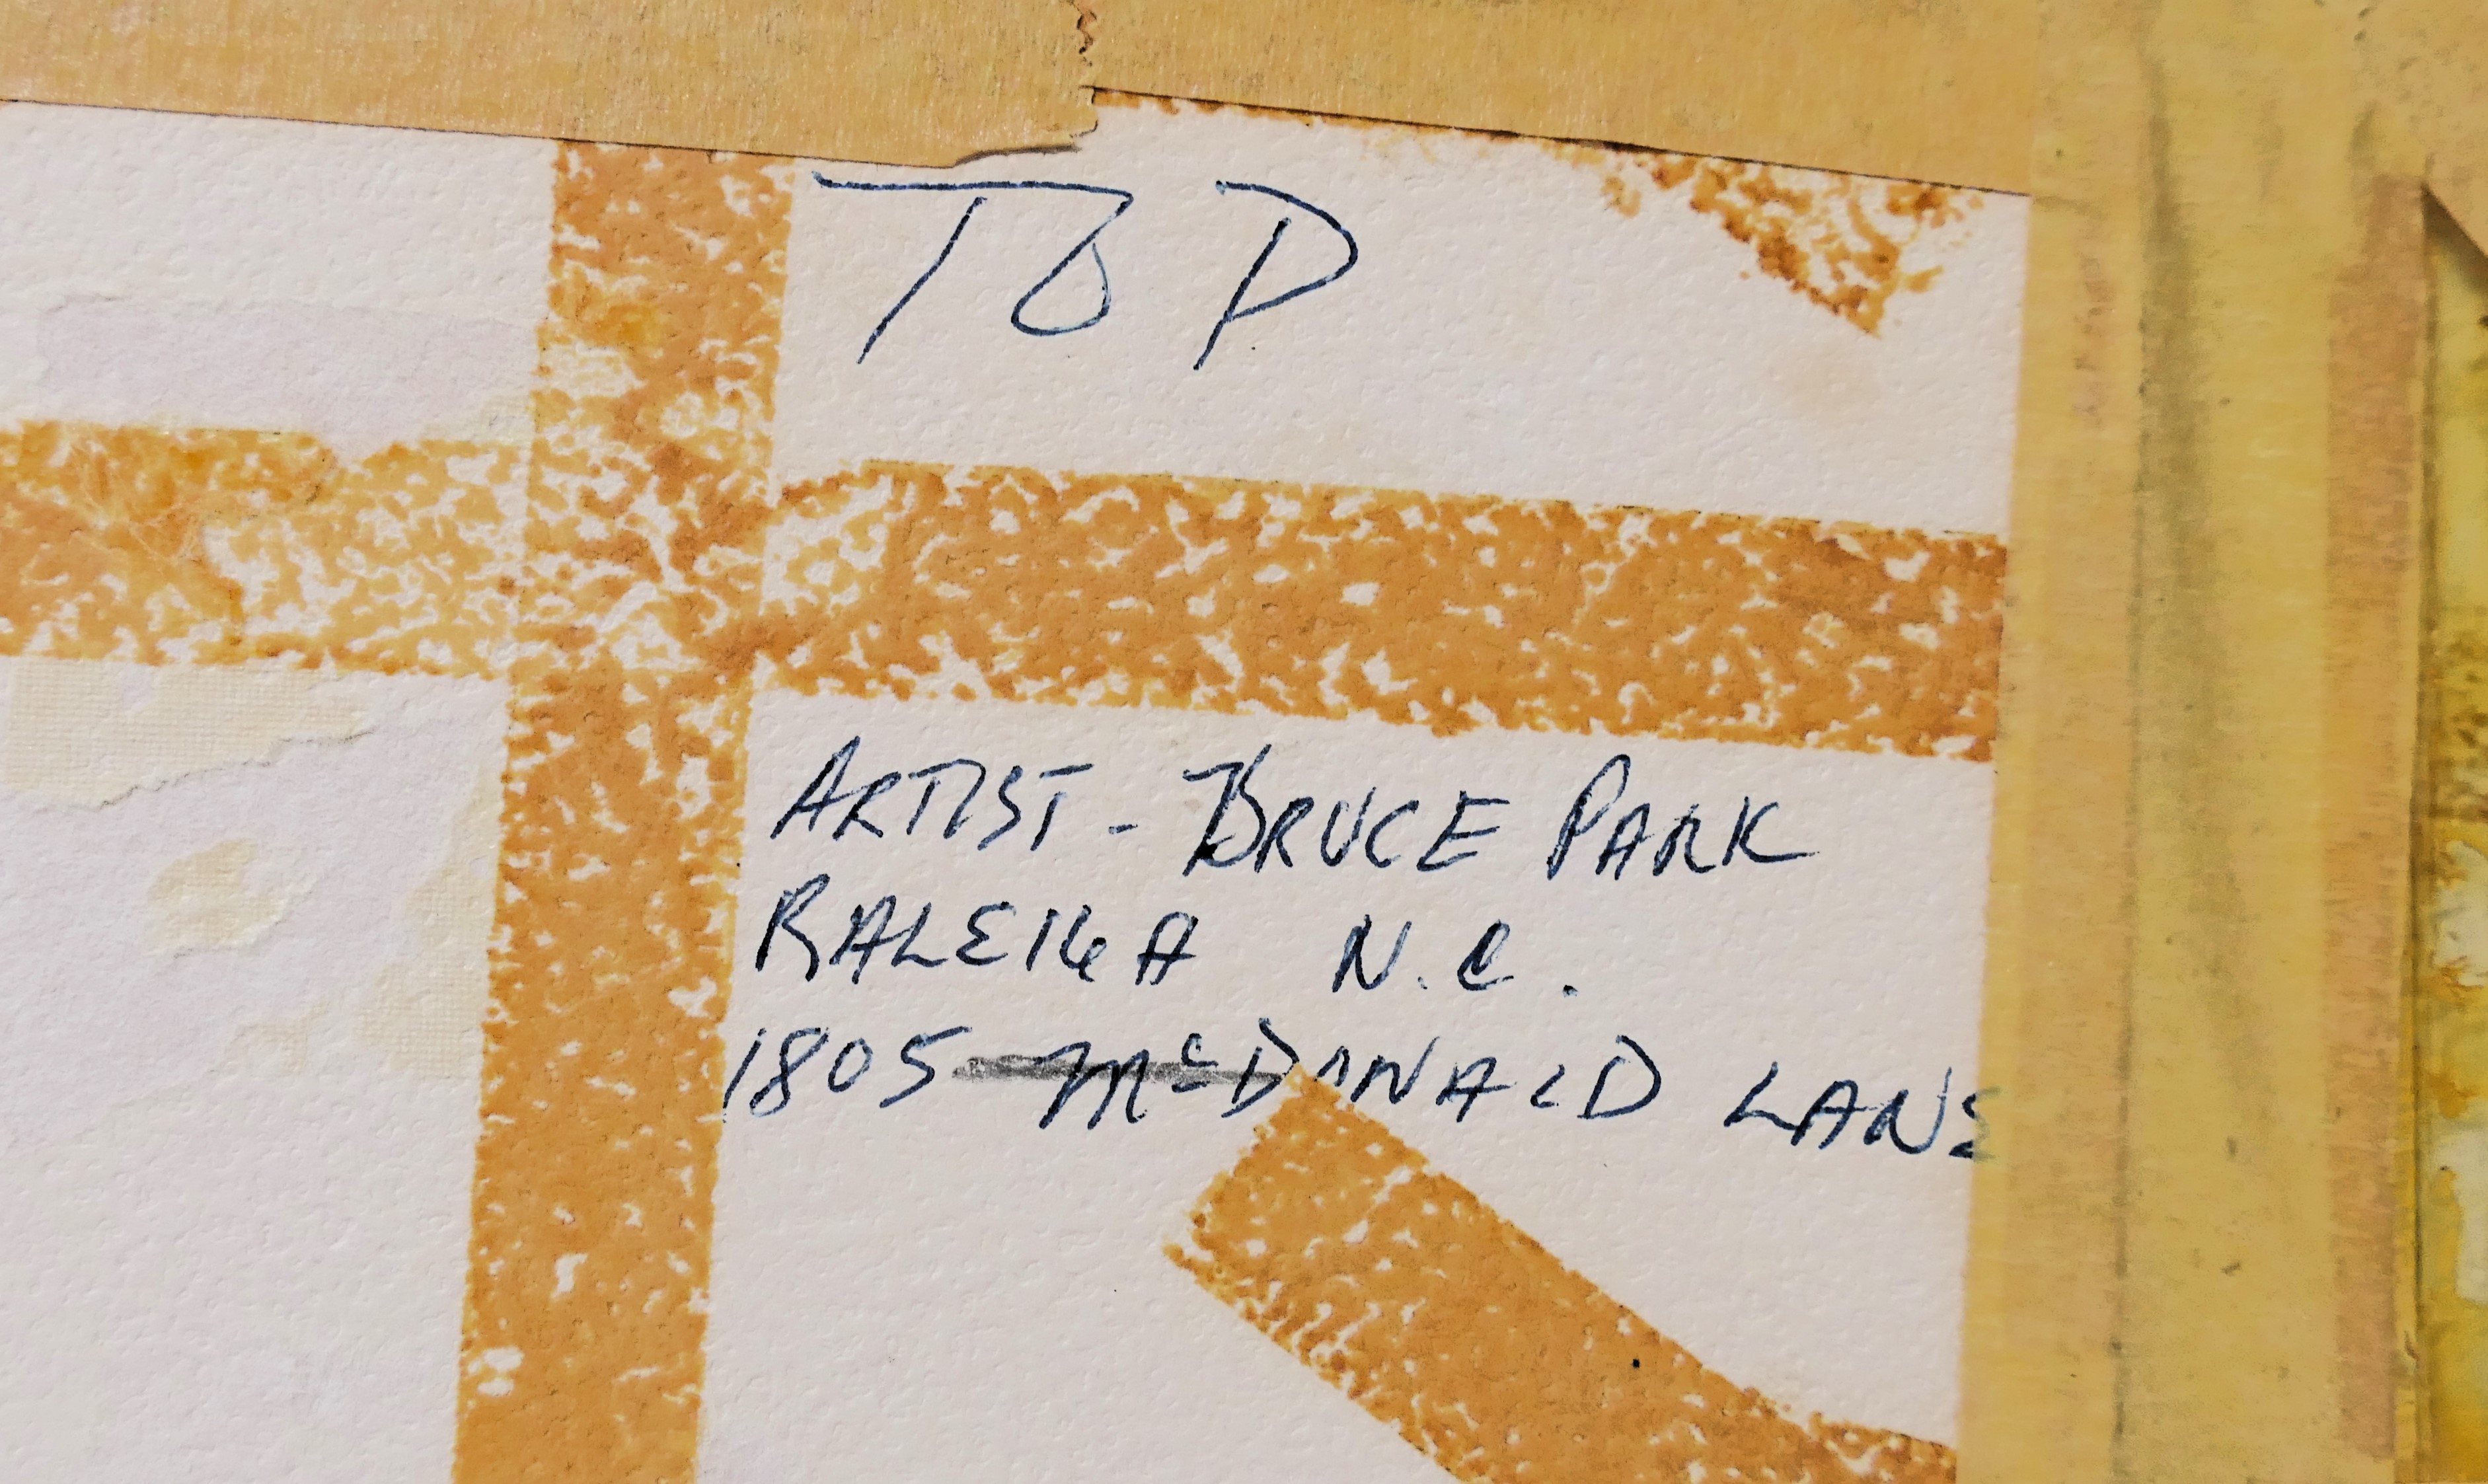 TOP
ARTIST - BRUCE PARK
RALEIGH N.C.
1805 McDONALD LANE